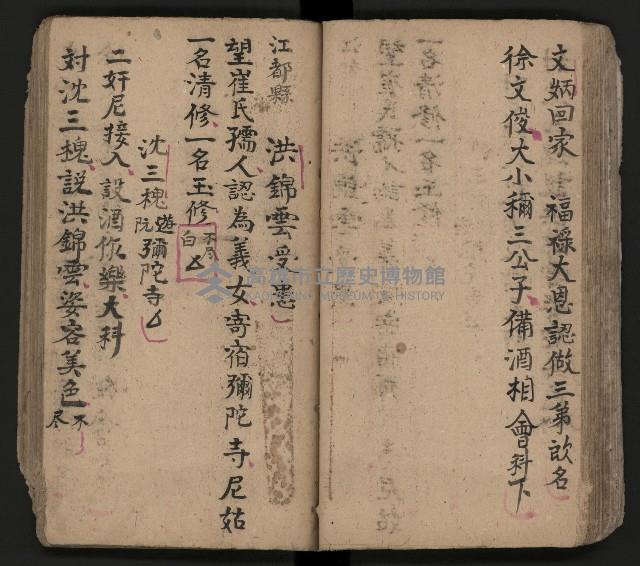 文炳回家　福祿大恩認做三弟改名
徐文俊大小稱三公子備酒相會科下
江都縣
洪錦雲受
望崔氏孺人認為義女寄宿彌陀寺尼姑
一名清修一名玉修
白
沈三槐遊彌陀寺
院
二奸尼接入設酒作樂大科
对沈三槐説洪錦雲姿容美色不
尽
高雄市立歷史博物館
KAOHSIUNG MUSEUM OF HISTORY